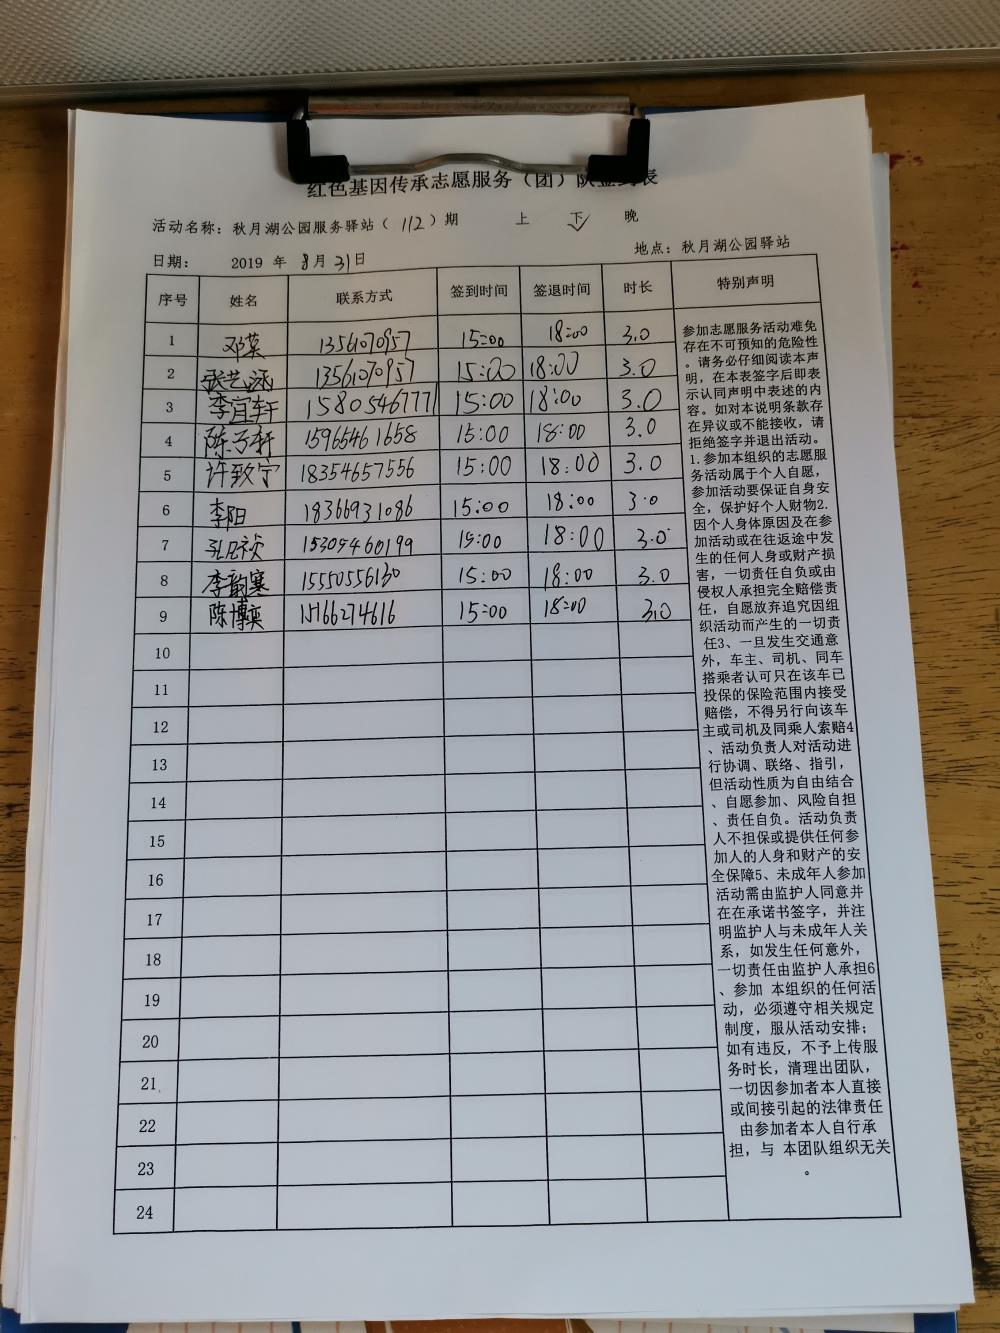 红色基因传承志愿服务（团）队签到表
活动名称：秋月湖公园服务驿站（112）期 上 下 ✓ 晚
日期： 2019 年 8 月 31 日 地点：秋月湖公园驿站
序号 姓名 联系方式 签到时间 签退时间 时长 特别声明
1 邓莫 13561070957 15:00 18:00 3.0
2 13561070957 15:00 18:00 3.0
3 李宜轩 15805467771 15:00 18:00 3.0
4 陈子轩 15965461658 15:00 18:00 3.0
5 许致宁 18354657556 15:00 18:00 3.0
6 李阳 18366931086 15:00 18:00 3.0
7 15:00 18:00 3.0
8 李韵寒 15550556130 15:00 18:00 3.0
9 陈博奕 15:00 18:00 3.0
10
11
12
13
14
15
16
17
18
19
20
21
22
23
24
参加志愿服务活动难免
存在不可预知的危险性
。请务必仔细阅读本声
明，在本表签字后即表
示认同声明中表述的内
容。如对本说明条款存
在异议或不能接收，请
拒绝签字并退出活动。
1.参加本组织的志愿服
务活动属于个人自愿，
参加活动要保证自身安
全，保护好个人财物2.
因个人身体原因及在参
加活动或在往返途中发
生的任何人身或财产损
害，一切责任自负或由
侵权人承担完全赔偿责
任，自愿放弃追究因组
织活动而产生的一切责
任3、一旦发生交通意
外，车主、司机、同车
搭乘者认可只在该车已
投保的保险范围内接受
赔偿，不得另行向该车
主或司机及同乘人索赔4
、活动负责人对活动进
行协调、联络、指引，
但活动性质为自由结合
、自愿参加、风险自担
、责任自负。活动负责
人不担保或提供任何参
加人的人身和财产的安
全保障5、未成年人参加
活动需由监护人同意并
在在承诺书签字，并注
明监护人与未成年人关
系，如发生任何意外，
一切责任由监护人承担6
、参加 本组织的任何活
动，必须遵守相关规定
制度，服从活动安排；
如有违反，不予上传服
务时长，清理出团队，
一切因参加者本人直接
或间接引起的法律责任
由参加者本人自行承
担，与 本团队组织无关
。